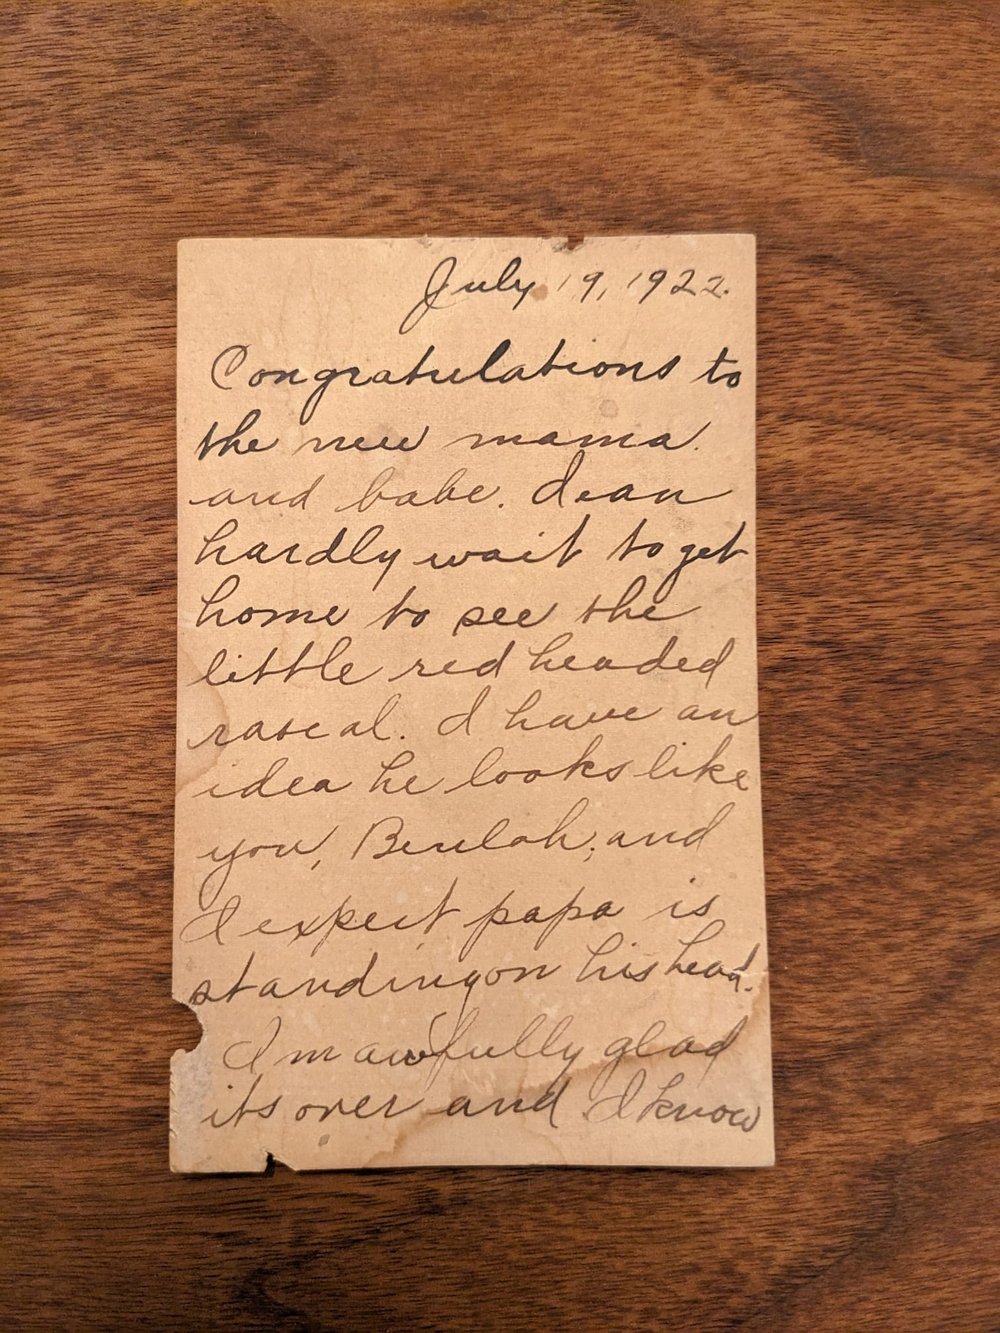 July 19, 1922.
Congratulations to
the new mama
and babe. I can
hardly wait to get
home to see the
little red headed
rascal. I have an
idea he looks like
you, Beulah, and
I expect papa is
standing on his head.
I'm awfully glad
its over and I know